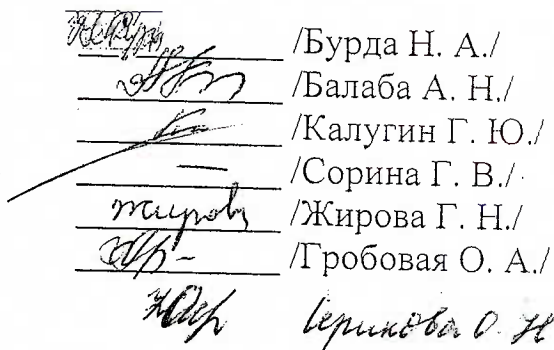 /Бурда Н. А./
/Балаба А. Н./
/Калугин Г. Ю./
— /Сорина Г. В./
Жирова /Жирова Г. Н./
/Гробовая О. А./
О. Н